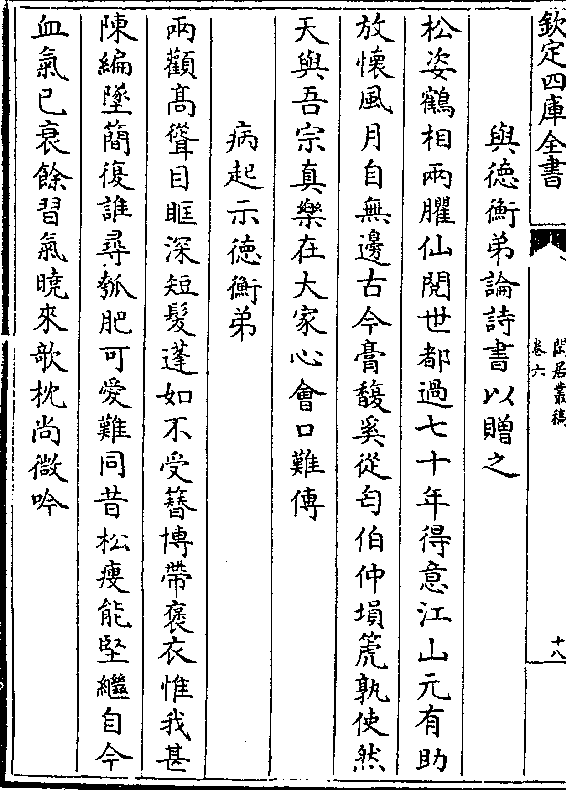 欽定四庫全書
閒居叢稿
卷六
十八
與德衡弟論詩書以贈之
松姿鶴相兩臞仙閱世都過七十年得意江山元有助
放懷風月自無邊古今膏馥奚從匄伯仲塤箎孰使然
天與吾宗真樂在大家心會口難傳
病起示德衡弟
兩顴髙聳目眶深短髮蓬如不受簪博帶褒衣惟我甚
陳編墜蕑復誰尋瓠肥可愛難同昔松瘦能堅繼自今
血氣已衰餘習氣曉來欹枕尚微吟